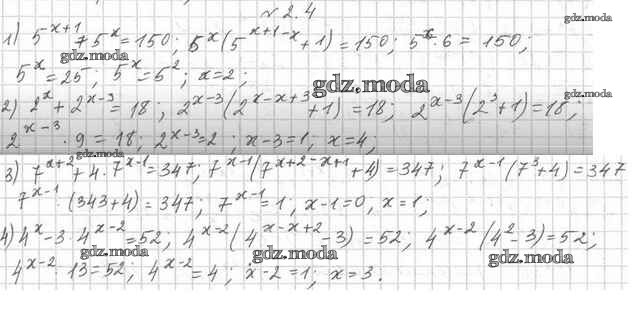 № 2.4
gdz.moz
1) 5^{x+1} + 5^x = 150; 5^x(5^{x+1-x} + 1) = 150; 5^x · 6 = 150;
5^x = 25; 5^x = 5^2; x = 2; gdz.moz
gdz.moz
2) 2^x + 2^{x-3} = 18; 2^{x-3}(2^{x-x+3} + 1) = 18; 2^{x-3}(2^3 + 1) = 18;
2^{x-3} · 9 = 18; 2^{x-3} = 2; x-3 = 1; x = 4;
gdz.moz
3) 7^{x+2} + 4 · 7^{x-1} = 347; 7^{x-1}(7^{x+2-x+1} + 4) = 347; 7^{x-1}(7^3 + 4) = 347
7^{x-1} · (343 + 4) = 347; 7^{x-1} = 1; x-1 = 0, x = 1;
4) 4^x - 3 · 4^{x-2} = 52; 4^{x-2}(4^{x-x+2} - 3) = 52; 4^{x-2}(4^2 - 3) = 52;
gdz.moz gdz.moz gdz.moz
4^{x-2} · 13 = 52; 4^{x-2} = 4; x-2 = 1; x = 3.